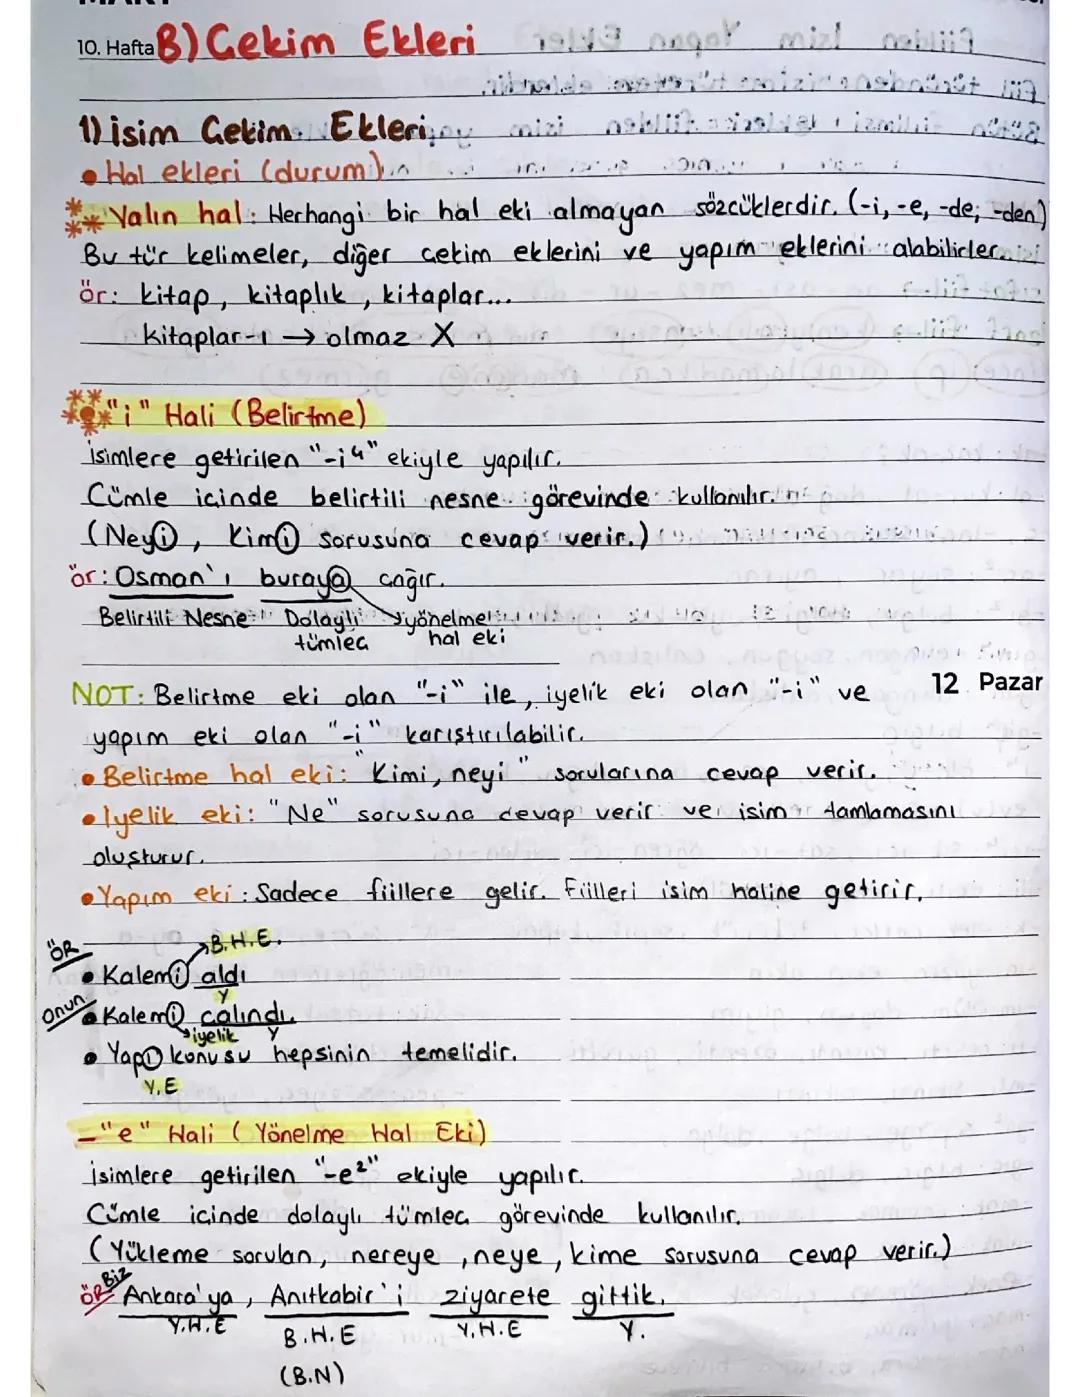 10. Hafta B) Çekim Ekleri
1) isim Çekim Ekleri
• Hal ekleri (durum)
Yalın hal: Herhangi bir hal eki almayan sözcüklerdir. (-i, -e, -de, -den)
Bu tür kelimeler, diğer çekim eklerini ve yapım eklerini alabilirler.
ör: kitap, kitaplık, kitaplar...
kitaplar-ı → olmaz X
"i" Hali (Belirtme)
isimlere getirilen "-i⁴" ekiyle yapılır.
Cümle içinde belirtili nesne görevinde kullanılır.
(Neyi, kimi sorusuna cevap verir.)
ör: Osman'ı buraya çağır.
Belirtili Nesne Dolaylı yönelme
tümleç hal eki
NOT: Belirtme eki olan "-i" ile, iyelik eki olan "-i" ve 12 Pazar
yapım eki olan "-i" karıştırılabilir.
• Belirtme hal eki: "Kimi, neyi" sorularına cevap verir.
• İyelik eki: "Ne" sorusuna cevap verir ve isim tamlamasını
oluşturur.
• Yapım eki: Sadece fiillere gelir. Fiilleri isim haline getirir.
ÖR B.H.E.
• Kalemi aldı
Y
Onun • Kalemi çalındı.
iyelik Y
• Yapı konusu hepsinin temelidir.
Y.E
- "e" Hali (Yönelme Hal Eki)
isimlere getirilen "-e²" ekiyle yapılır.
Cümle içinde dolaylı tümleç görevinde kullanılır.
(Yükleme sorulan, nereye, neye, kime sorusuna cevap verir.)
ÖR Biz Ankara'ya, Anıtkabir'i ziyarete gittik.
Y.H.E B.H.E Y.H.E Y.
(B.N)